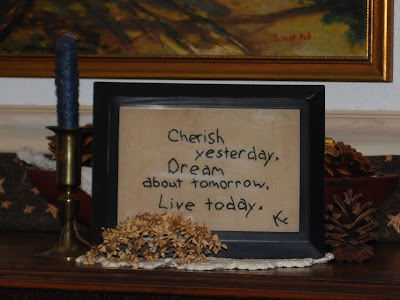 Cherish
yesterday,
Dream
about tomorrow,
Live today.
K